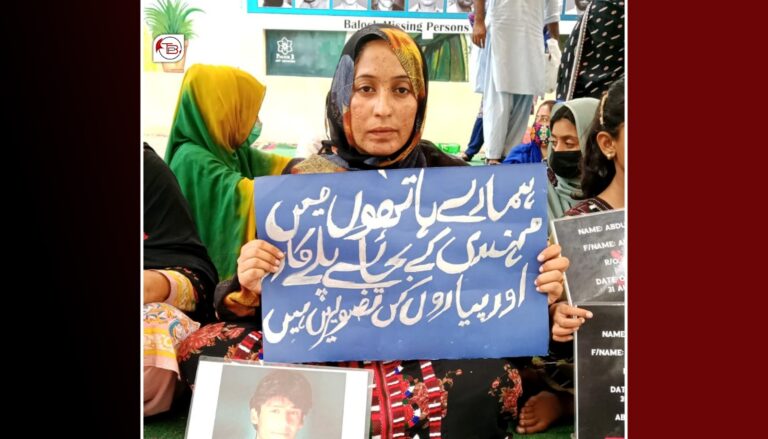 TB
Baloch Missing Persons
ہمارے ہاتھوں میں
مہندی کے بجائے پلے کارڈ
اور پیاروں کی تصویریں ہیں
NAME: ABDU
F/NAME: AB
R/O
DATE O
31 A
NAME:
F/NAM
R/O
DAT
31
AB